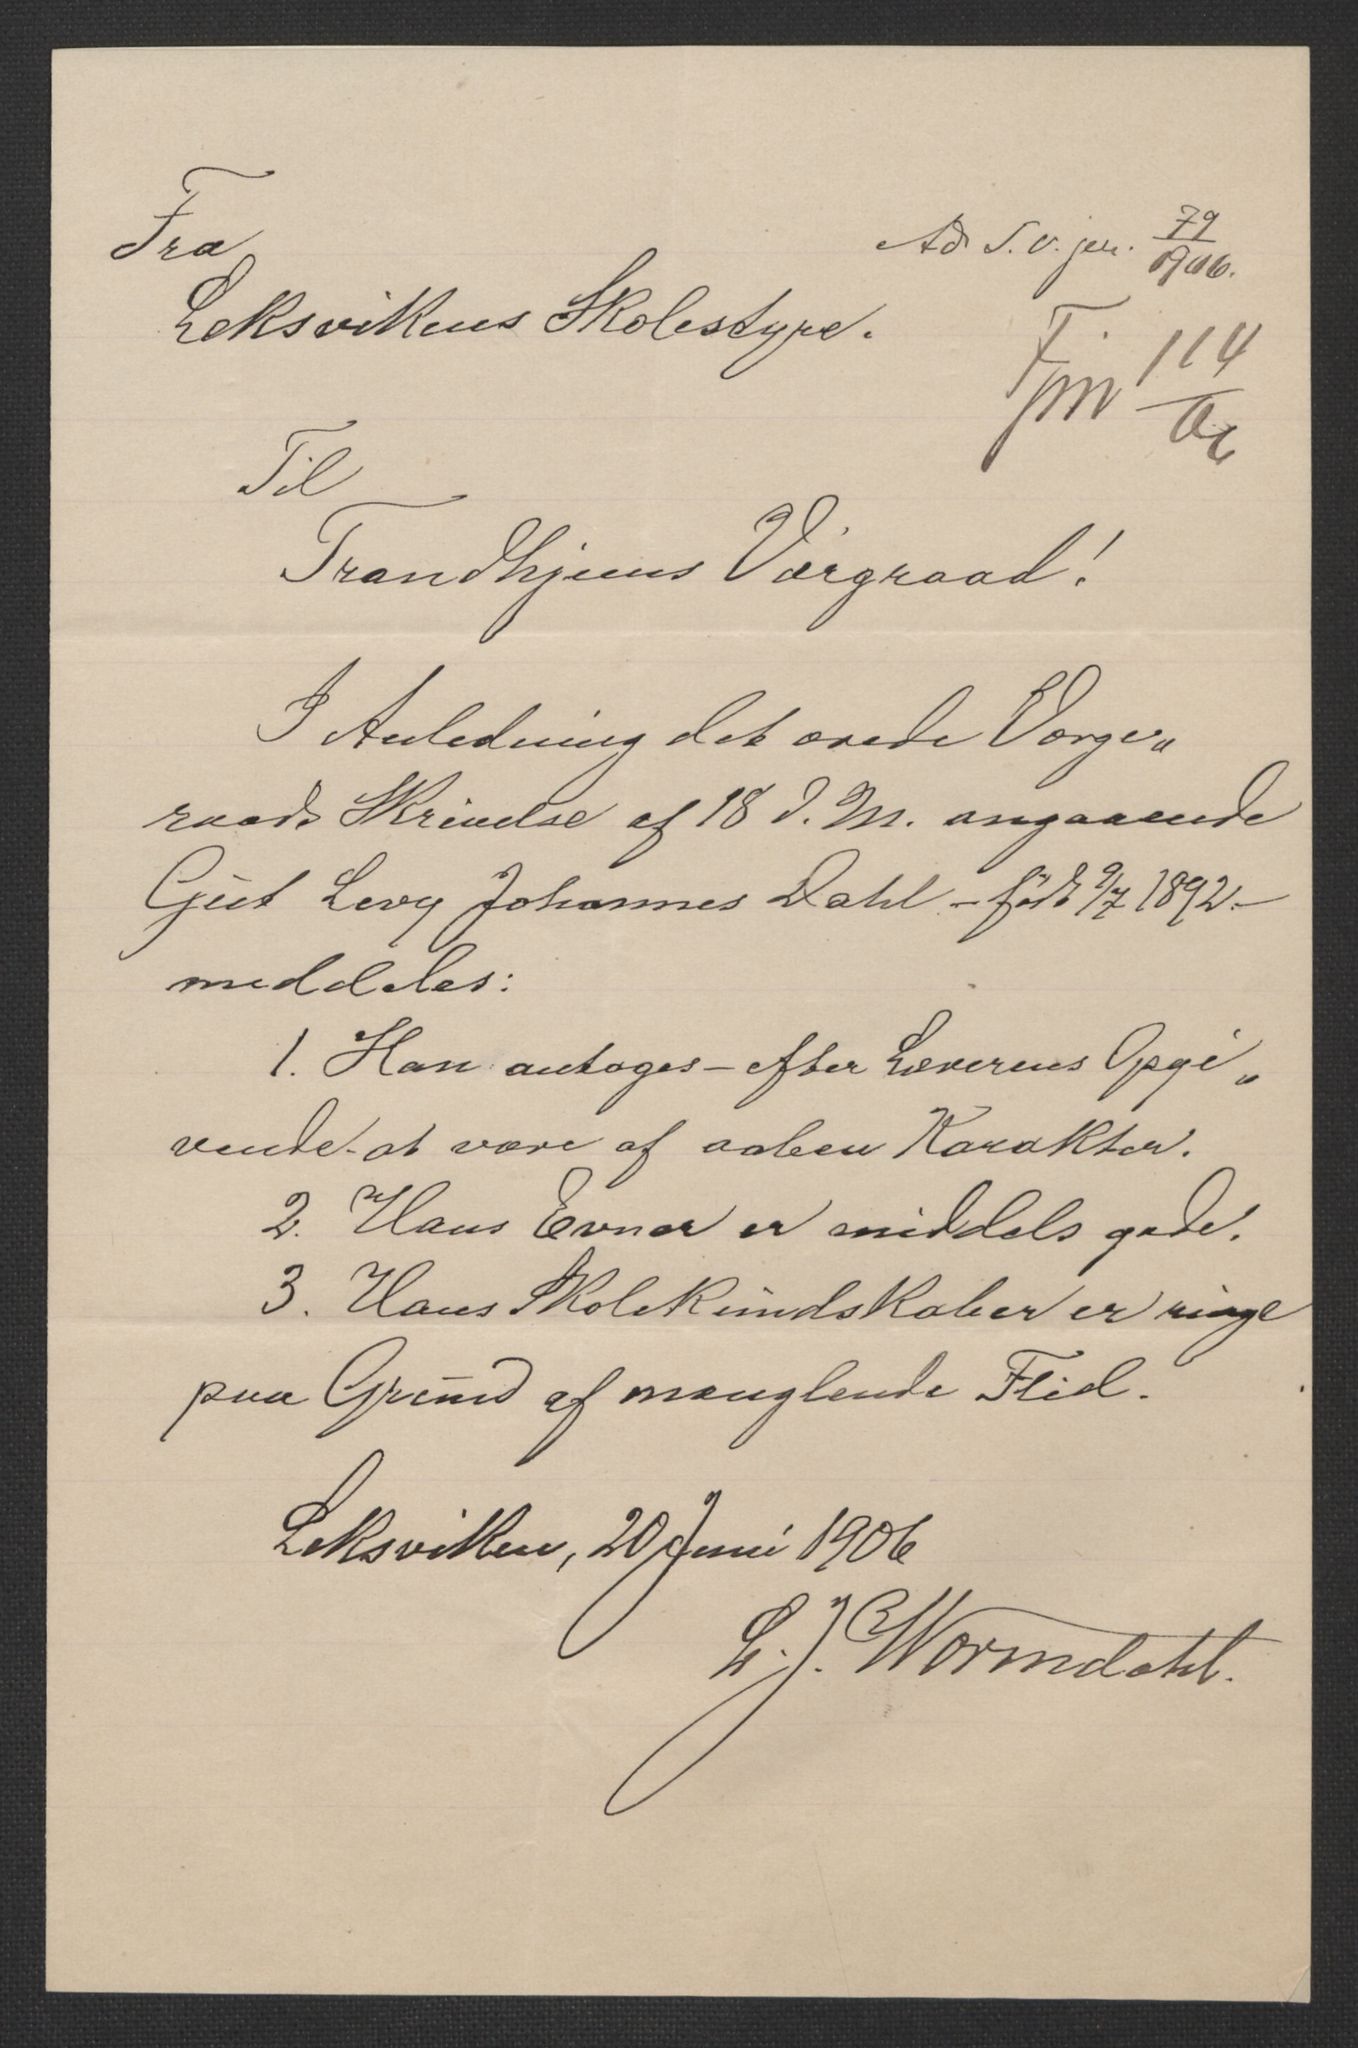 Fra
Ad S. V. jnr. 79/1906.
Leksvikens Skolestyre.
Fjm 114/06
Til
Trondhjems Værgraad!
I Anledning det ærede Værge„
raads Skrivelse af 18 d. M. angaaende
Gut Levy Johannes Dahl – født 9/7 1892 –
meddeles:
1. Han antages – efter Lærerens Opgi„
vende – at være af aaben Karakter.
2. Hans Evner er middels gode.
3. Hans Skolekundskaber er ringe
paa Grund af manglende Flid.
Leksviken, 20 Juni 1906
L. J. Wormdahl.